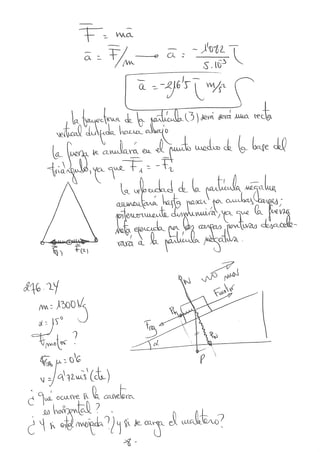 F̄ = mā
ā = F̄/m → ā = -1'082 / 5.10⁻³ ī
ā = -216'5 ī m/s²
la trayectoria de la partícula (3) será una recta
vertical dirigida hacia abajo
la fuerza se anulará en el punto medio de la base del
triángulo, ya que F̄₁ = -F̄₂
la velocidad de la partícula negativa
aumentará hasta pasar por ambas cargas;
posteriormente disminuirá, ya que la fuerza
neta ejercida por las cargas positivas desacele-
rará a la partícula negativa.
F(1) F(2)
276.24
m = 1300 Kg
α = 15°
F̄motor ?
μ = 0'6
v = 9'72 m/s (cte)
¿Qué ocurre si la carretera
es horizontal?
¿Y si está mojada? ¿y si se carga el maletero?
N mov
Fmotor
Froz
α
P
-8-